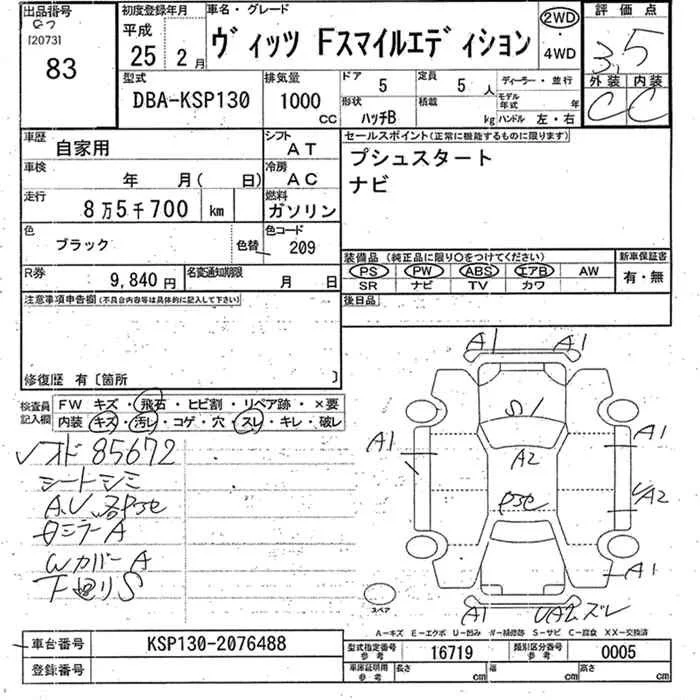 出品番号 初度登録年月 車名・グレード 2WD 評価点
[2073] 平成 ヴィッツ Fスマイルエディション ・ 3.5
83 25年 2月 4WD 外装 内装
型式 排気量 ドア 5 定員 5人 ディーラー・並行 C C
DBA-KSP130 1000cc 形状 ハッチB 積載 kg モデル年式 年 ハンドル 左・右
車歴 自家用 シフト AT セールスポイント(正常に機能するものに限ります)
車検 年 月( 日) 冷房 AC プシュスタート
走行 8万5千700 km 燃料 ガソリン ナビ
色 ブラック 色替 色コード 209
装備品(純正品に限り○をつけてください) 新車保証書
R券 9,840円 名変通知期限 月 日 PS PW ABS エアB AW 有・無
SR ナビ TV カワ
注意事項申告欄(不具合内容等は具体的に記入して下さい) 後日品
修復歴 有〔箇所 〕
検査員記入欄 FW キズ・飛石・ヒビ割・リペア跡・×要
内装 キズ・汚レ・コゲ・穴・スレ・キレ・破レ
オド 85672
シートシミ
A.U
ミラーA
WカバーA
下廻りS
A1 A1
S1
A1 A2 A1
UA2
A1
A1 UA2.ズレ
スペア
A-キズ E-エクボ U-凹み ダ-補修跡 S-サビ C-腐食 XX-交換済
車台番号 KSP130-2076488 型式指定番号 参考 16719 類別区分番号 参考 0005
登録番号 車庫証明用 参考 長さ cm 幅 cm 高さ cm